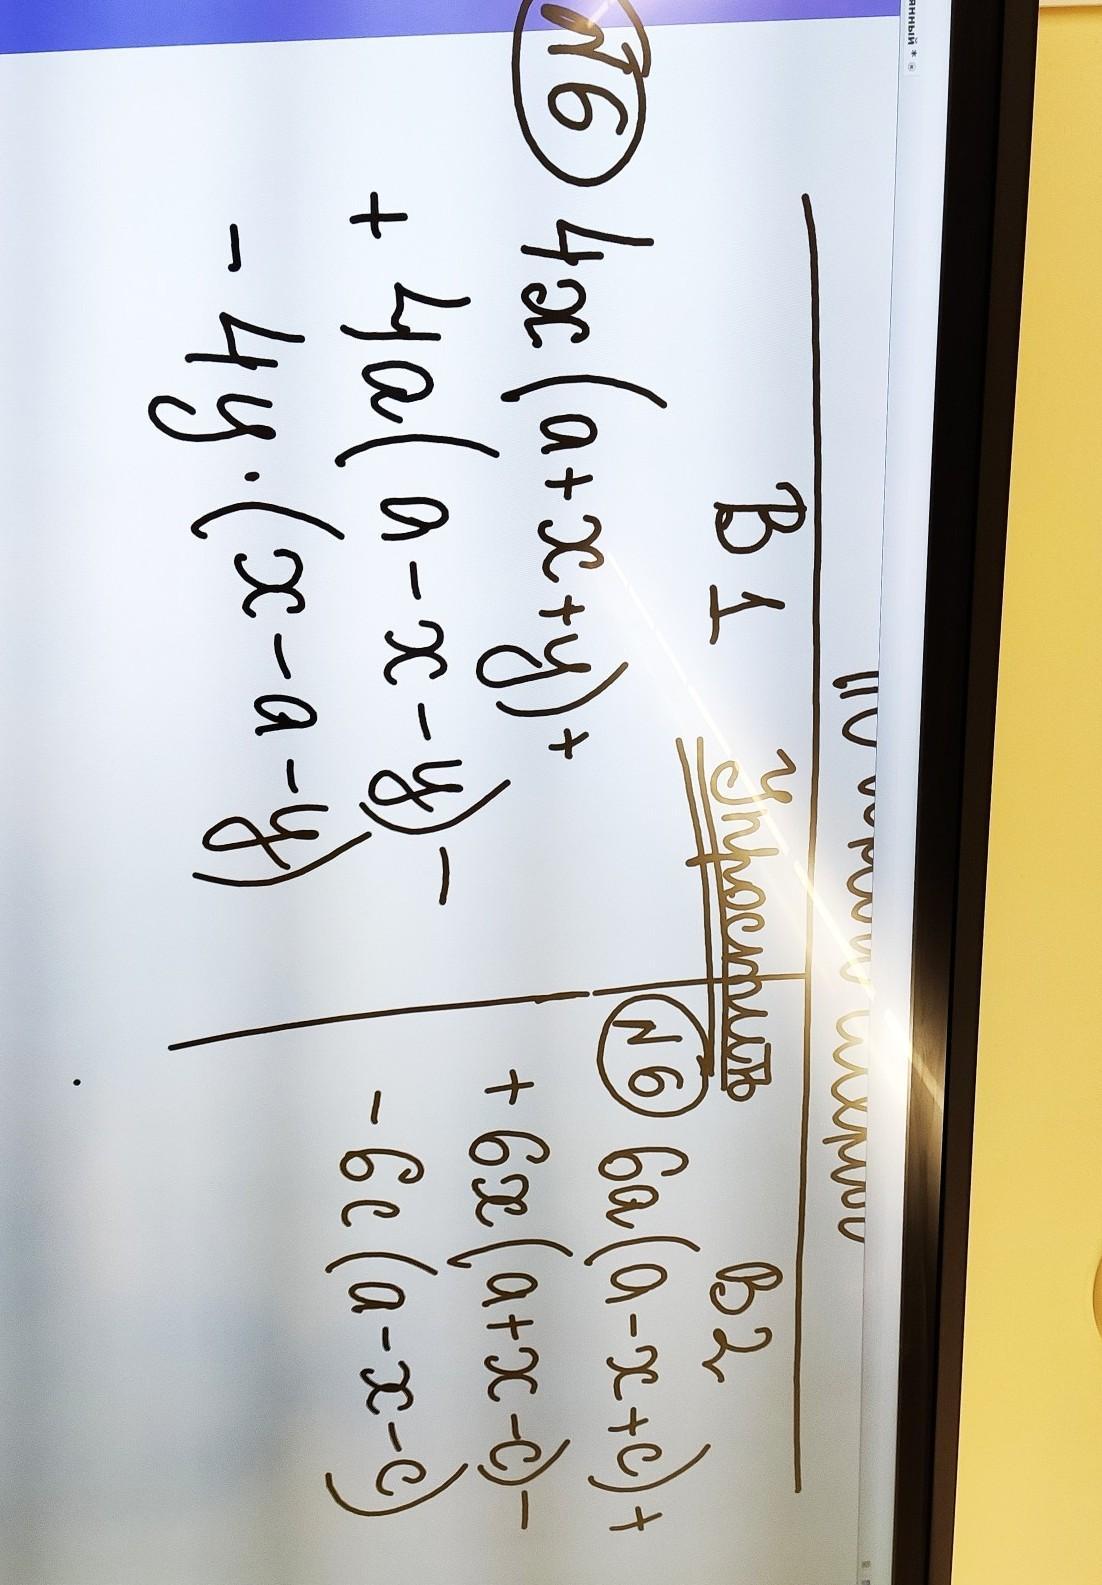 В 1
Упростить
В 2
№6 4x(a+x+y)+
+ 4a(a-x-y)-
- 4y·(x-a-y)
N6 6a(a-x+c)+
+ 6x(a+x-c)-
- 6c(a-x-c)